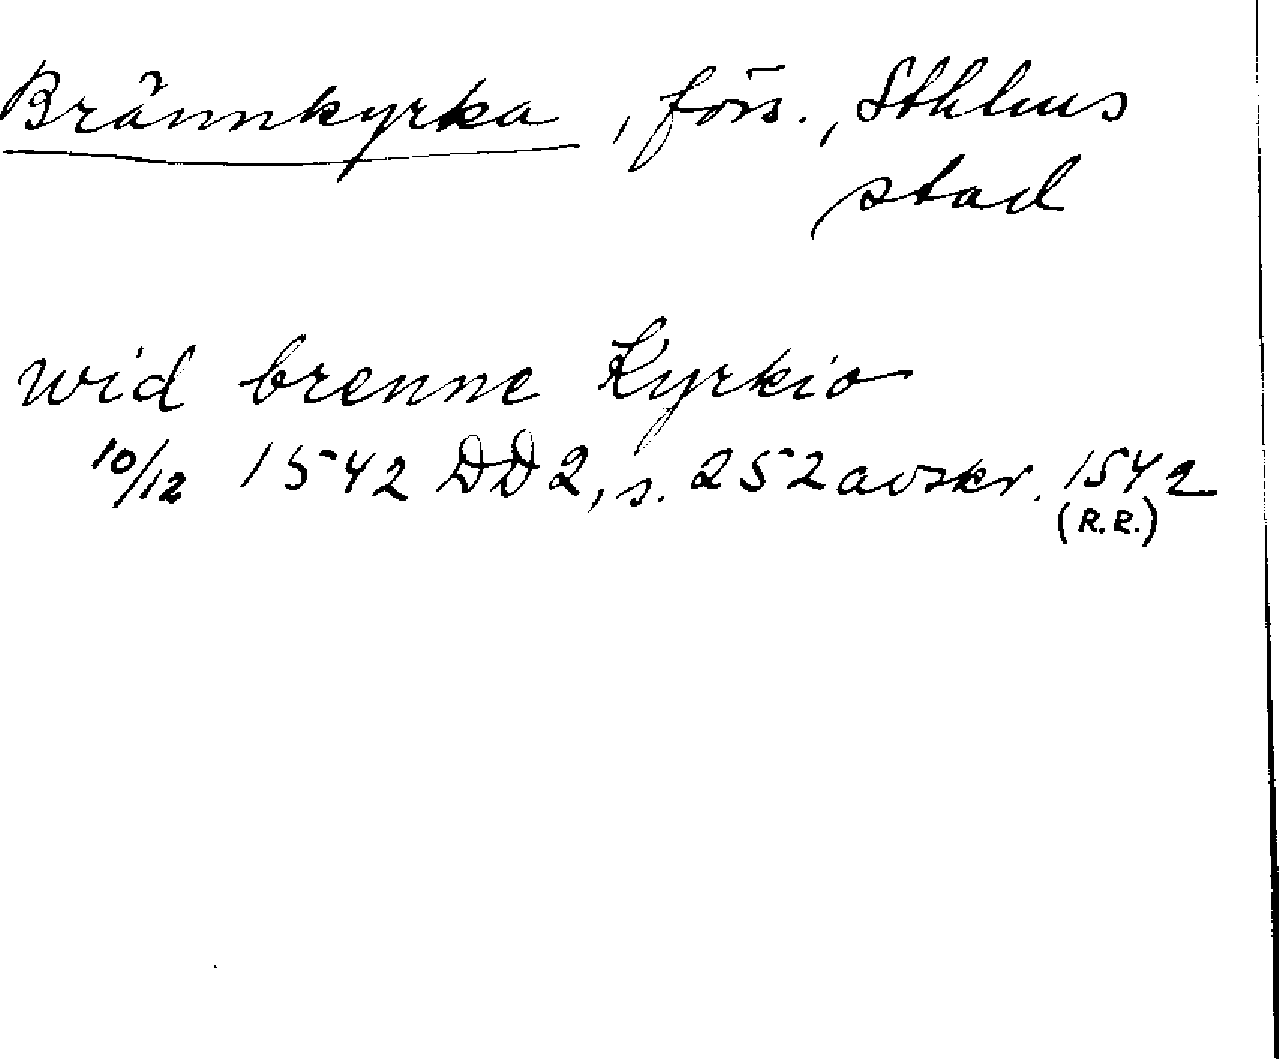 Brännkyrka, förs., Sthlms
stad
wid brenne Kyrkio
10/12 1542 DD2, s. 252 avskr. 1542
(R.R.)